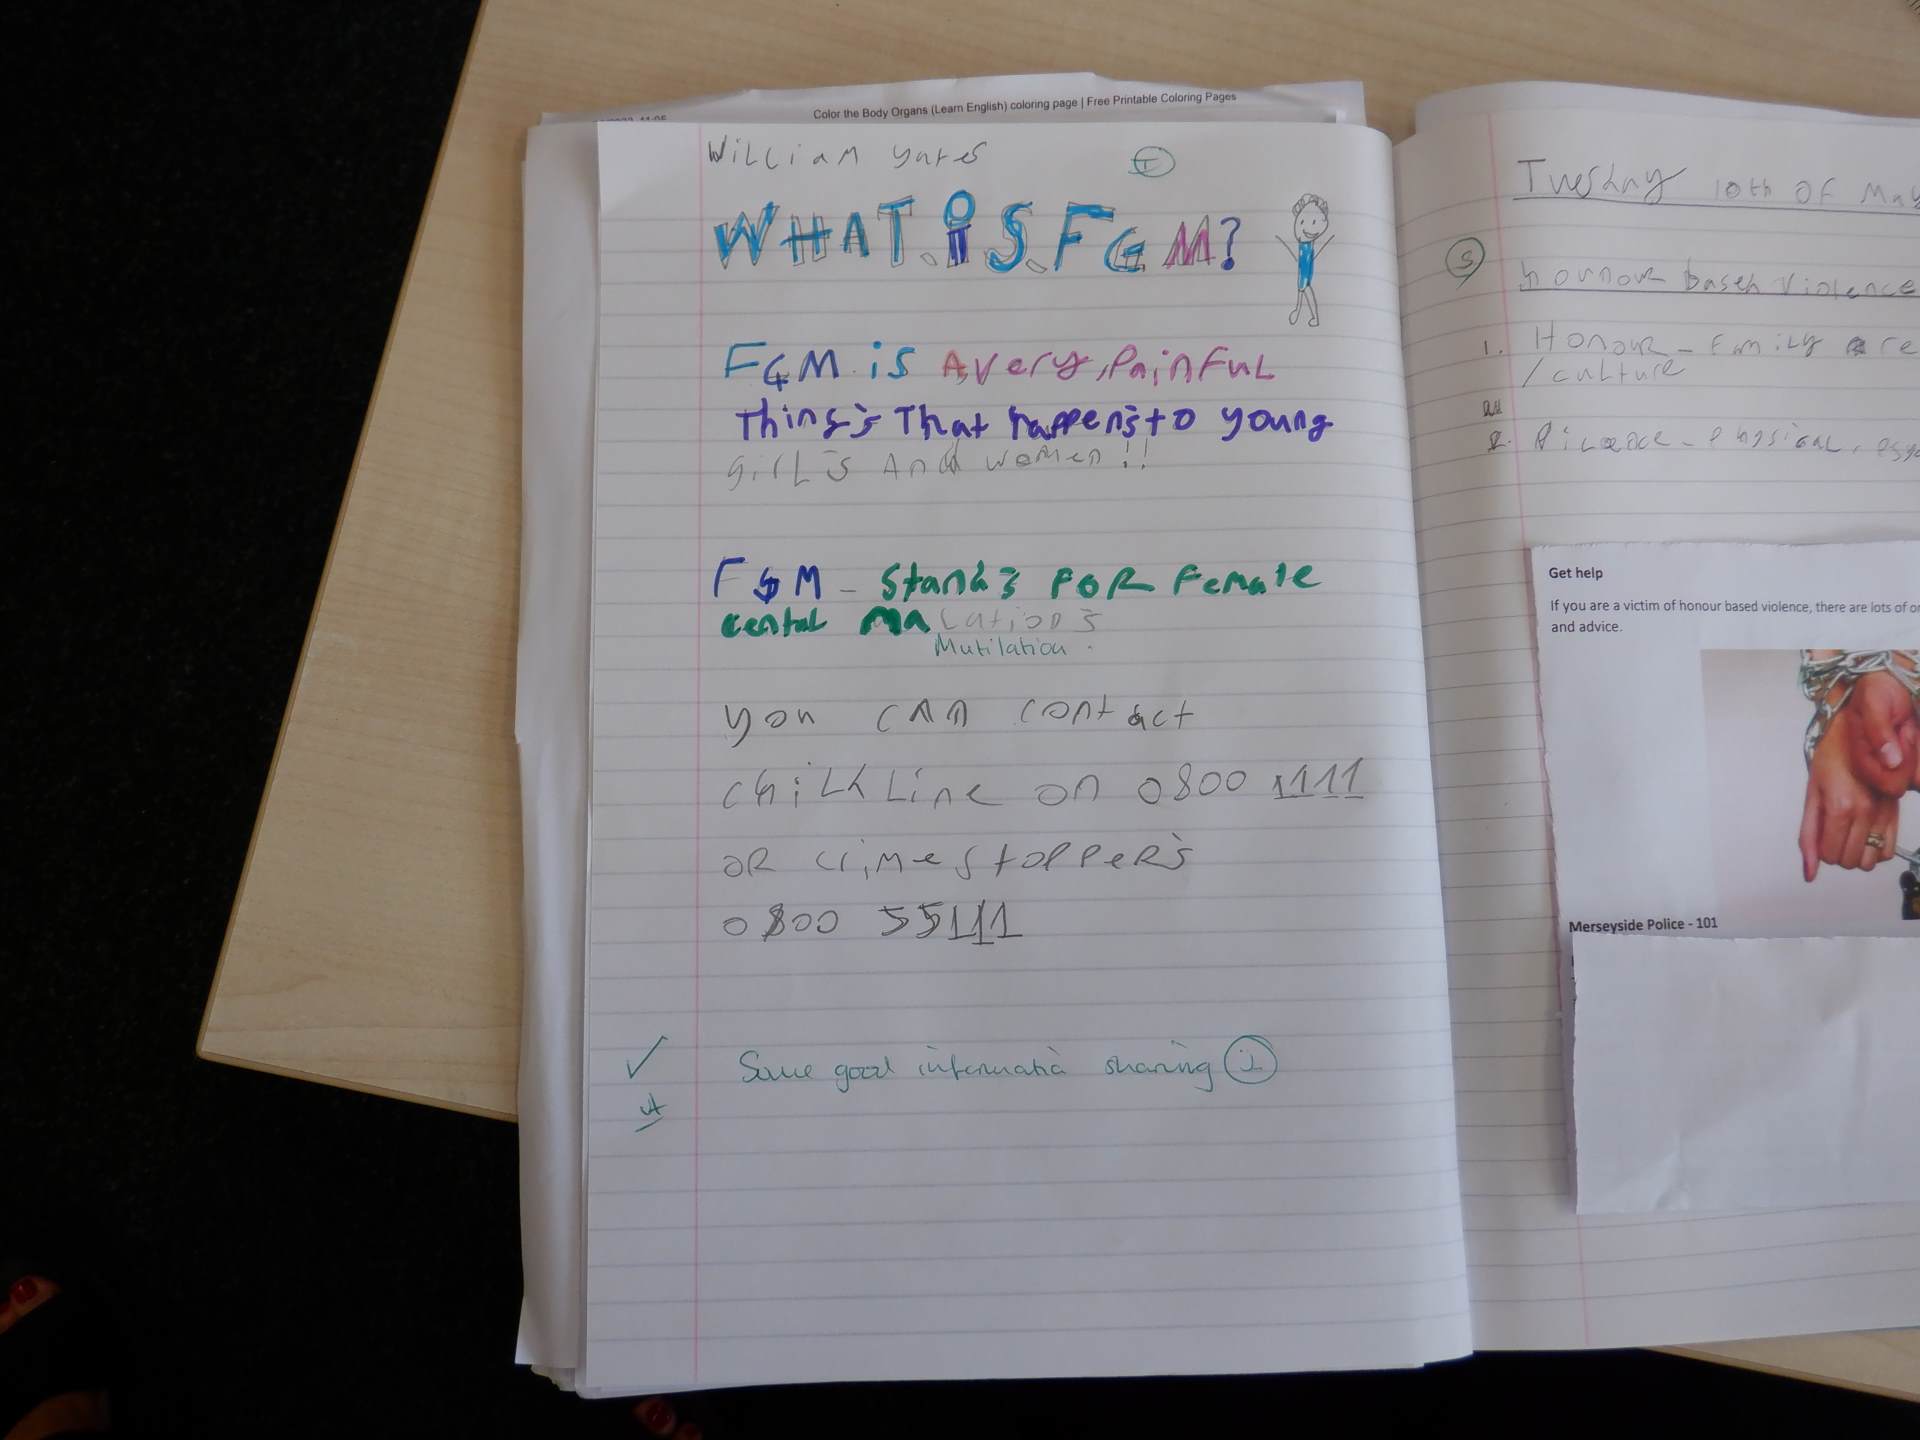 Color the Body Organs (Learn English) coloring page | Free Printable Coloring Pages
WiLLiAM yates
I
WHAT.iS.FGM?
FGM is A very, Painful
Thing's That happen's to young
girL's And women!!
FGM - Stand's FOR Female
cental MaLation's
Mutilation.
you can contact
chiLdLine on 0800 1111
OR crimestoppeR's
0800 55111
Some good information sharing
Tuesday 10th OF May
S
honour based violence
1. Honour - Family
/ culture
2. - Physical,
Get help
If you are a victim of honour based violence, there are lots of
and advice.
Merseyside Police - 101